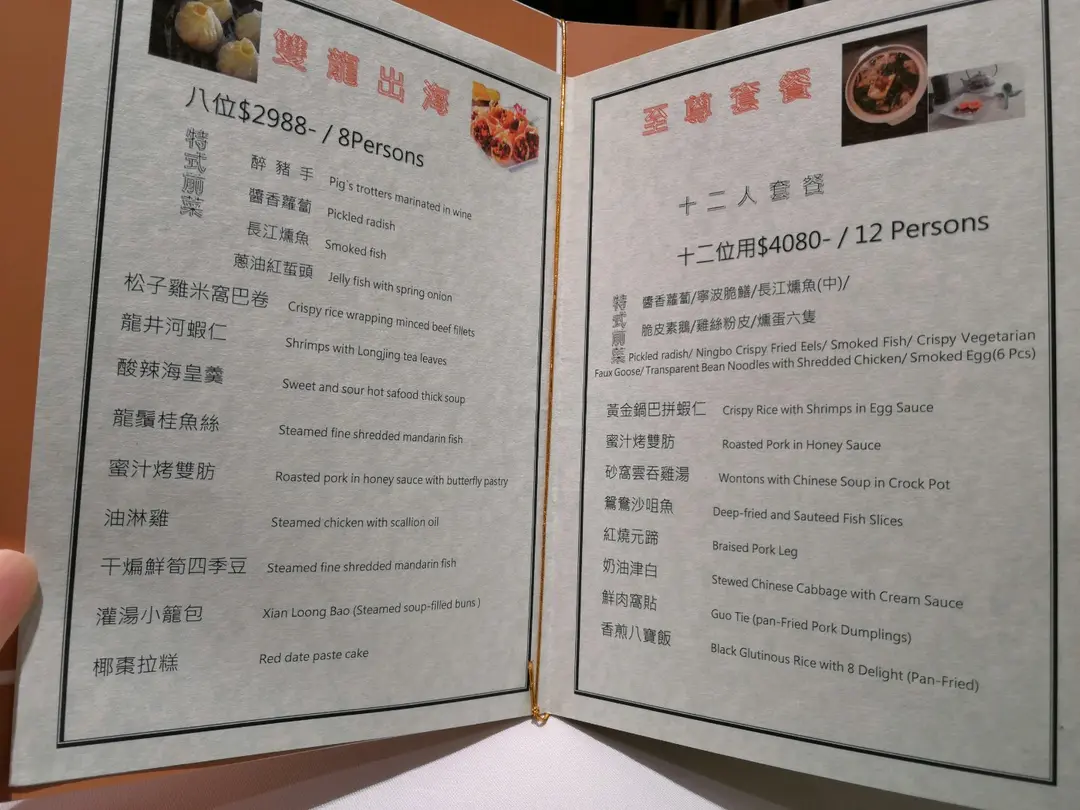 雙龍出海
八位$2988- / 8Persons
特式前菜
醉豬手 Pig's trotters marinated in wine
醬香蘿蔔 Pickled radish
長江燻魚 Smoked fish
蔥油紅蜇頭 Jelly fish with spring onion
松子雞米窩巴卷 Crispy rice wrapping minced beef fillets
龍井河蝦仁 Shrimps with Longjing tea leaves
酸辣海皇羹 Sweet and sour hot safood thick soup
龍鬚桂魚絲 Steamed fine shredded mandarin fish
蜜汁烤雙肪 Roasted pork in honey sauce with butterfly pastry
油淋雞 Steamed chicken with scallion oil
干煸鮮筍四季豆 Steamed fine shredded mandarin fish
灌湯小籠包 Xian Loong Bao (Steamed soup-filled buns )
椰棗拉糕 Red date paste cake
至尊套餐
十二人套餐
十二位用$4080- / 12 Persons
特式前菜
醬香蘿蔔/寧波脆鱔/長江燻魚(中)/
脆皮素鵝/雞絲粉皮/燻蛋六隻
Pickled radish/ Ningbo Crispy Fried Eels/ Smoked Fish/ Crispy Vegetarian
Faux Goose/ Transparent Bean Noodles with Shredded Chicken/ Smoked Egg(6 Pcs)
黃金鍋巴拼蝦仁 Crispy Rice with Shrimps in Egg Sauce
蜜汁烤雙肪 Roasted Pork in Honey Sauce
砂窩雲吞雞湯 Wontons with Chinese Soup in Crock Pot
鴛鴦沙咀魚 Deep-fried and Sauteed Fish Slices
紅燒元蹄 Braised Pork Leg
奶油津白 Stewed Chinese Cabbage with Cream Sauce
鮮肉窩貼 Guo Tie (pan-Fried Pork Dumplings)
香煎八寶飯 Black Glutinous Rice with 8 Delight (Pan-Fried)